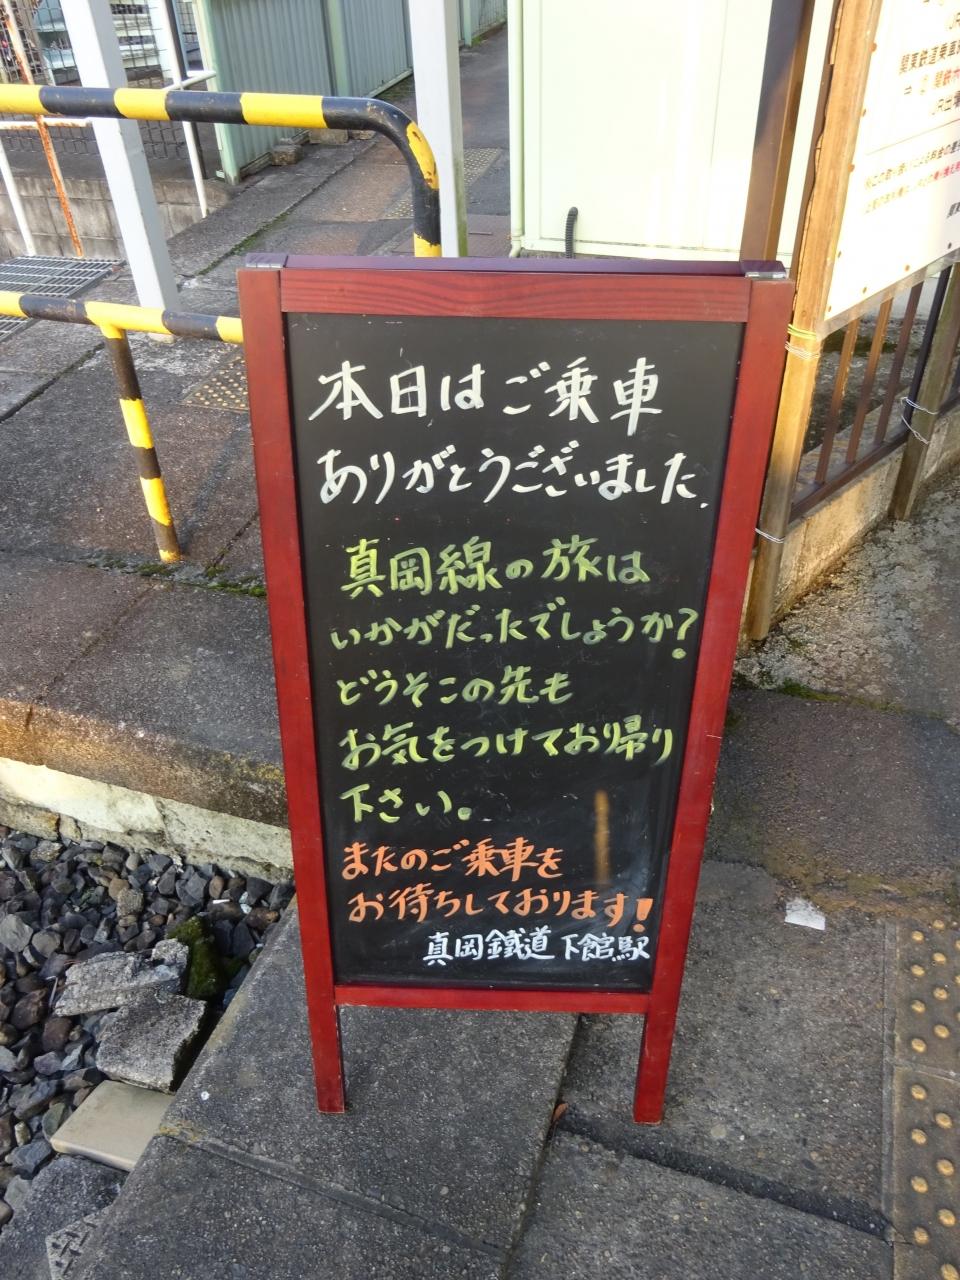 本日はご乗車
ありがとうございました.
真岡線の旅は
いかがだったでしょうか?
どうぞこの先も
お気をつけてお帰り
下さい。
またのご乗車を
お待ちしております!
真岡鐵道下館駅
関東鉄道乗車